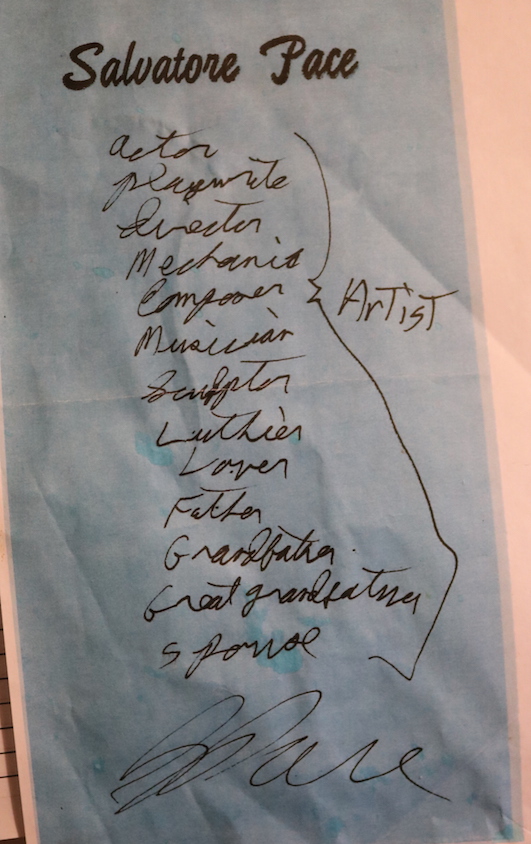 Salvatore Pace
actor
playwrite
Director
Mechanic
Composer
Artist
Musician
Sculptor
Luthier
Lover
Father
Grandfather
Great grandfather
spouse
S Pace